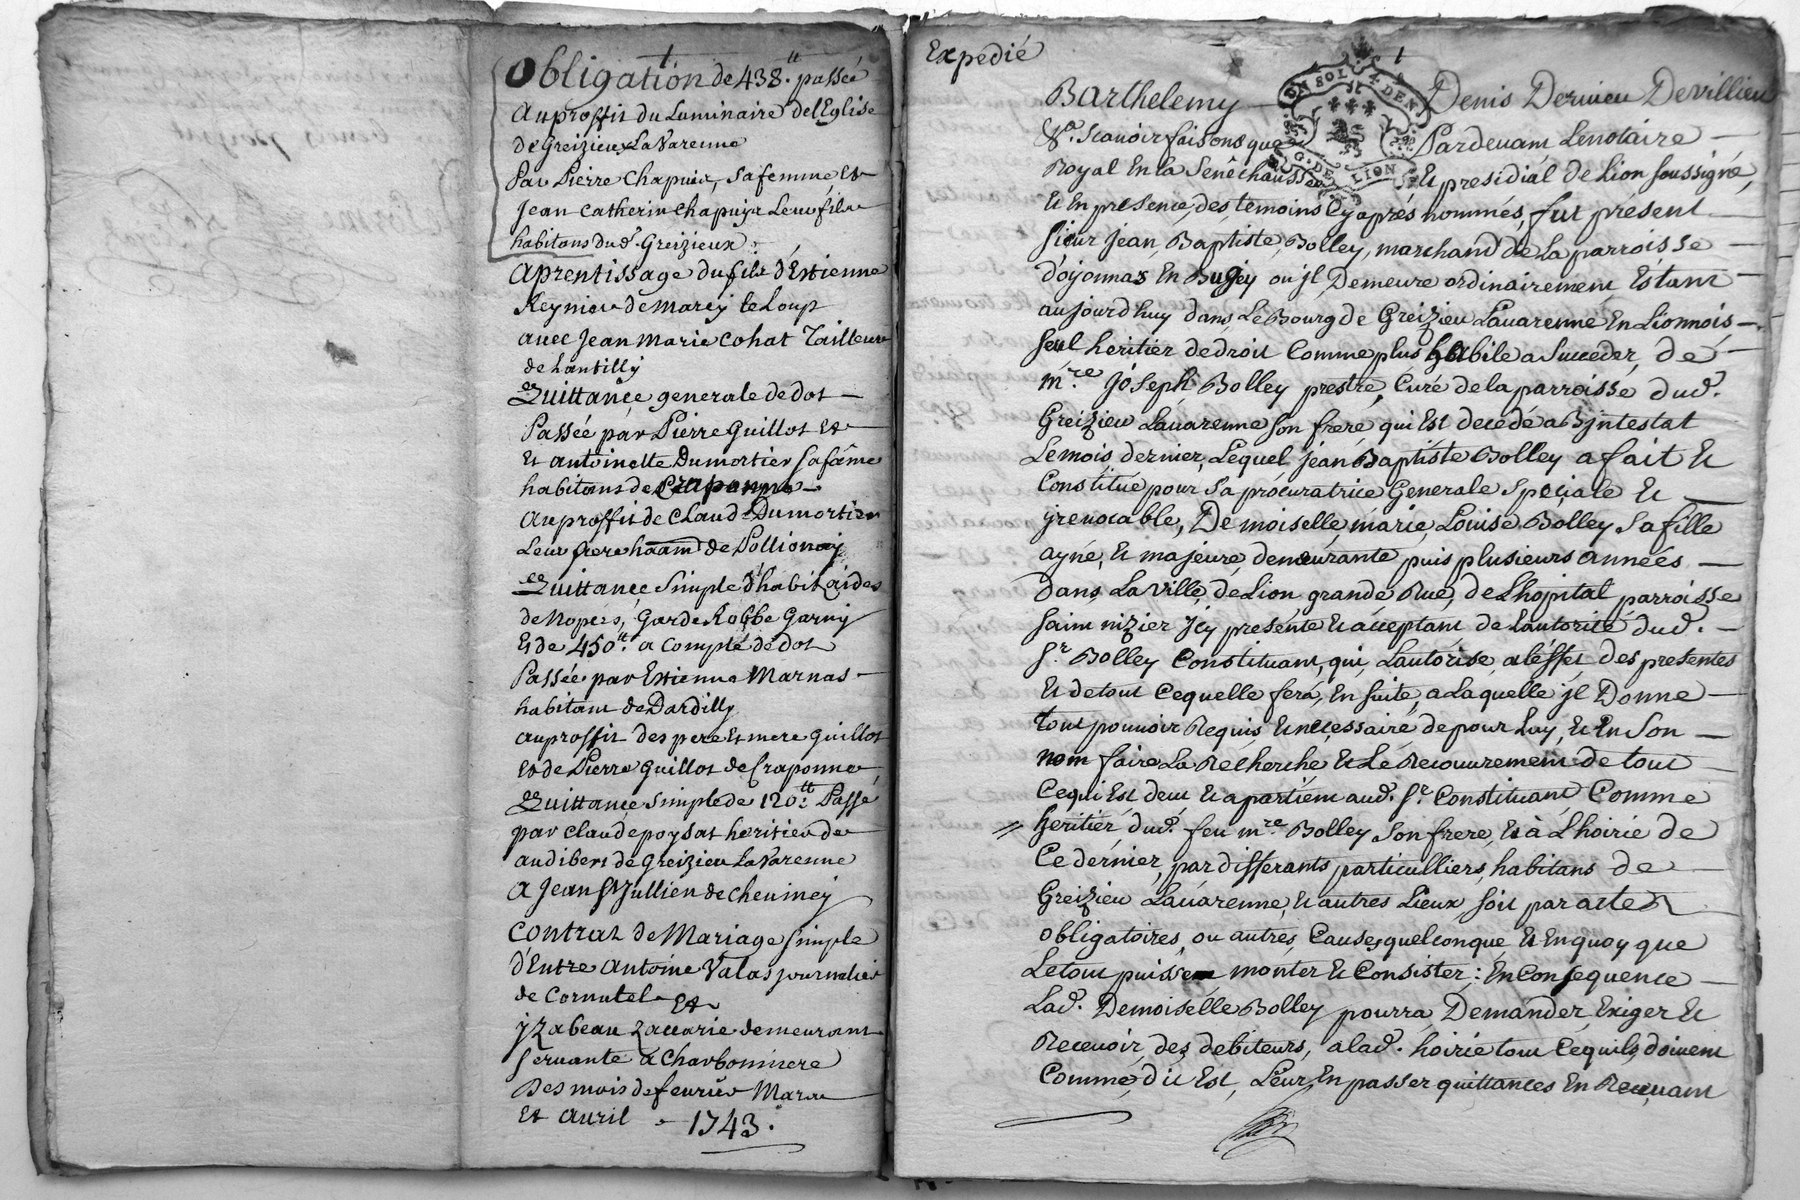 Obligation de 438.tt passée
Au proffit du Luminaire de l'Eglise
de Greizieu La Varenne
Par Pierre Chapuis, sa femme, Et
Jean Catherin Chapuis Leur fils
habitans dud. Greizieux
Aprentissage du fils d'Estienne
Reynier de Marcy le Loup
avec Jean Marie Cohat Tailleur
de Lentilly
Quittançe generale de dot
Passée par Pierre Guillot Et
Et antoinette Dumortier sa fâme
habitans de Craponne
Au proffit de Claude Dumortier
Leur frere de Pollionay
Quittançe Simple d'habit, aides
de Nopces, Garde Robbe Garny
Et de 450.tt a Compte de dot
Passée par Estienne Marnas
habitant de Dardilly
au proffit des pere Et mere Guillot
Et de Pierre Guillot de Craponne
Quittance simple de 120.tt Passé
par Claude poysat heritier de
audibert de Greizieu La Varenne
A Jean St Jullien de Cheviney
Contrat de Mariage simple
d'Entre Antoine Valas journalier
de Cornutel Et
yzabeau zaccarie demeurant
servante a Charbonniere
Des mois de fevrier Mars
Et Avril 1743.
Expedié
Barthelemy Denis Dervieu Devillieu
&a. Scavoir faisons que Pardevant Le notaire
Royal En la Senêchaussée Et presidial de Lion soussigné,
Et En presence, des temoins Cy aprés nommés, fut présent
sieur Jean, Baptiste, Bolley, marchand de La parroisse
d'oyonnax En Bugey ou jl Demeure ordinairement Estant
aujourd'huy dans Le Bourg de Greizieu Lavarenne En Lionnois
seul heritier de droit Comme plus habile a Succeder, de
m.re Joseph Bolley prestre, Curé de la parroisse dud.
Greizieu Lavarenne son frere qui Est decedé abjntestat
Le mois dernier, Lequel jean Baptiste Bolley a fait Et
Constitué pour sa procuratrice Generale Speçiale Et
jrevocable, Demoiselle, marie, Louise Bolley sa fille
ayné, Et majeure, demeurante puis plusieurs années
dans La ville, de Lion grande Rue, de L'hopital parroisse
saint nizier jcy présente Et acceptant de l'autorité dud.
S.r Bolley Constituant, qui, L'autorise a l'effet des presentes
Et de tout Cequelle fera, En suite, a Laquelle jl Donne
tout pouvoir Requis Et neçessaire de pour Luy, Et En Son
nom faire La Recherche Et Le Recouvrement de tout
Cequi Est deut Et apartient aud. S.r Constituant Comme
heritier dud. feu m.re Bolley son frere, Et à L'hoirie de
Ce dernier, par differants particulliers, habitans de
Greizieu Lavarenne, Et autres Lieux soit par actes
obligatoires, ou autres Causes quelconque Et En quoy que
Le tout puisse monter Et Consister: En Consequence
Lad. Demoiselle Bolley pourra Demander, Exiger Et
Recevoir, des debiteurs, a lad. hoirie tout Cequils doivent
Comme, dit Est, Leur En passer quittances En Recevant